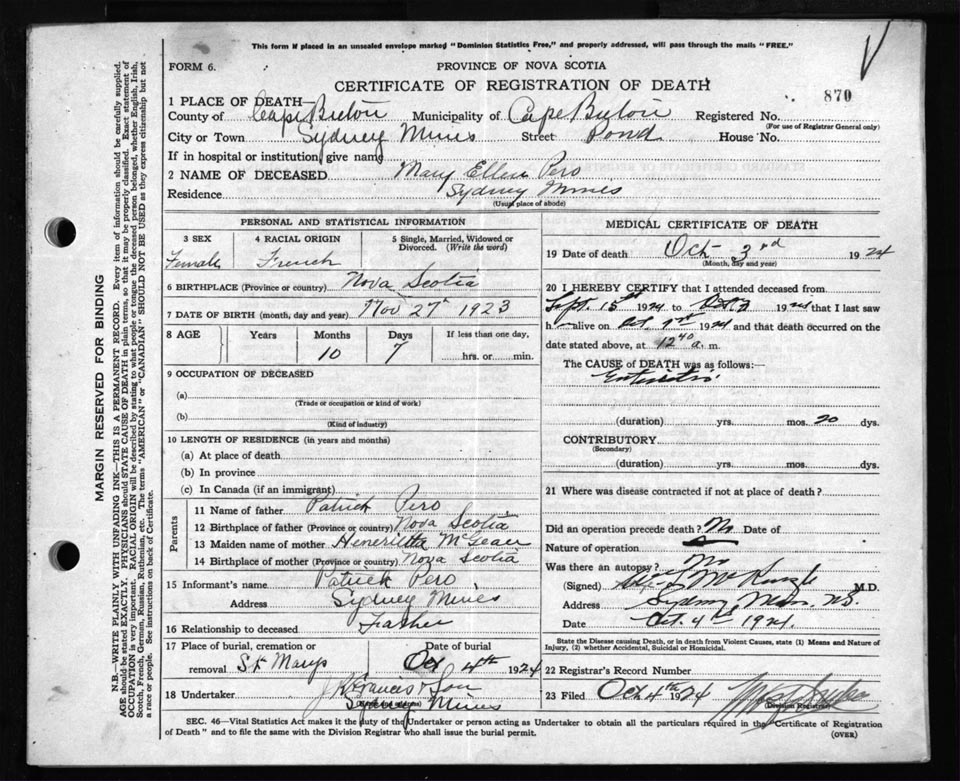 This form if placed in an unsealed envelope marked "Dominion Statistics Free," and properly addressed, will pass through the mails "FREE."
FORM 6.
PROVINCE OF NOVA SCOTIA
CERTIFICATE OF REGISTRATION OF DEATH
870
1 PLACE OF DEATH—
County of Cape Breton Municipality of Cape Breton Registered No.
(For use of Registrar General only)
City or Town Sydney Mines Street Pond House No.
If in hospital or institution, give name
2 NAME OF DECEASED Mary Ellen Pero
Residence Sydney Mines
(Usual place of abode)
PERSONAL AND STATISTICAL INFORMATION
3 SEX 4 RACIAL ORIGIN 5 Single, Married, Widowed or Divorced. (Write the word)
Female French
6 BIRTHPLACE (Province or country) Nova Scotia
7 DATE OF BIRTH (month, day and year) Nov 27th 1923
8 AGE Years Months Days If less than one day,
10 7 hrs. or min.
9 OCCUPATION OF DECEASED
(a)
(Trade or occupation or kind of work)
(b)
(Kind of industry)
10 LENGTH OF RESIDENCE (in years and months)
(a) At place of death
(b) In province
(c) In Canada (if an immigrant)
Parents
11 Name of father Patrick Pero
12 Birthplace of father (Province or country) Nova Scotia
13 Maiden name of mother Henerietta
14 Birthplace of mother (Province or country) Nova Scotia
15 Informant's name Patrick Pero
Address Sydney Mines
16 Relationship to deceased Father
17 Place of burial, cremation or removal St Marys Date of burial Oct 4th 1924
18 Undertaker J. Francis & Son
Sydney Mines
MEDICAL CERTIFICATE OF DEATH
19 Date of death Oct 3rd 1924
(Month, day and year)
20 I HEREBY CERTIFY that I attended deceased from
Sept. 15th 1924 to Oct 3 1924 that I last saw
h alive on Oct 1st 1924 and that death occurred on
date stated above, at 12 40 a. m.
The CAUSE OF DEATH was as follows:—
(duration) yrs. mos. 20 dys.
CONTRIBUTORY
(Secondary)
(duration) yrs. mos. dys.
21 Where was disease contracted if not at place of death?
Did an operation precede death? No Date of
Nature of operation
Was there an autopsy? No
(Signed) M.D.
Address Sydney Mines N.S.
Date Oct. 4th 1924.
State the Disease causing Death, or in death from Violent Causes, state (1) Means and Nature of Injury, (2) whether Accidental, Suicidal or Homicidal.
22 Registrar's Record Number
23 Filed Oct 4th 1924
(Division Registrar)
SEC. 46—Vital Statistics Act makes it the duty of the Undertaker or person acting as Undertaker to obtain all the particulars required in the Certificate of Registration
of Death" and to file the same with the Division Registrar who shall issue the burial permit.
(OVER)
MARGIN RESERVED FOR BINDING
N.B.—WRITE PLAINLY WITH UNFADING INK—THIS IS A PERMANENT RECORD. Every item of information should be carefully supplied.
AGE should be stated EXACTLY. PHYSICIANS should STATE CAUSE OF DEATH in plain terms, so that it may be properly classified. Exact statement of
OCCUPATION is very important. RACIAL ORIGIN will be described by stating to what people or tongue the deceased person belonged, whether English, Irish,
Scotch, French, German, Russian, Ruthenian, etc. The terms "AMERICAN" or "CANADIAN" SHOULD NOT BE USED as they express citizenship but not
a race or people. See instructions on back of Certificate.